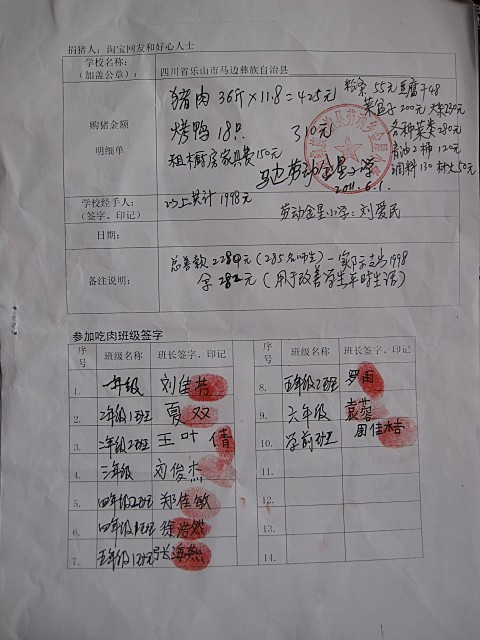 捐猪人：淘宝网友和好心人士
学校名称：
（加盖公章）：
四川省乐山市马边彝族自治县
购猪金额
明细单
猪肉 36斤×11.8=425元
粉条 55元 豆腐干48
菜包子200元 大米230元
烤鸭 18只 310元
各种菜类280元
租木厨房家具费150元
香油2桶 120元
调料130 柴火50元
马边劳动金星小学
2011.6.1.
学校经手人：
（签字、印记）
以上共计1998元
劳动金星小学：刘爱民
日期：
备注说明：
总善款2280元（285名师生）－实际支出1998
余282元（用于改善学生平时生活）
参加吃肉班级签字
序号 班级名称 班长签字、印记
1. 一年级 刘佳
2. 二年级1班 夏双
3. 二年级2班 王叶倩
4. 三年级 刘俊杰
5. 四年级2班 郑佳敏
6. 四年级1班 徐浩然
7. 五年级1班 海燕
序号 班级名称 班长签字、印记
8. 五年级2班 罗雨
9. 六年级 袁蓉
10. 学前班 周佳
11.
12.
13.
14.